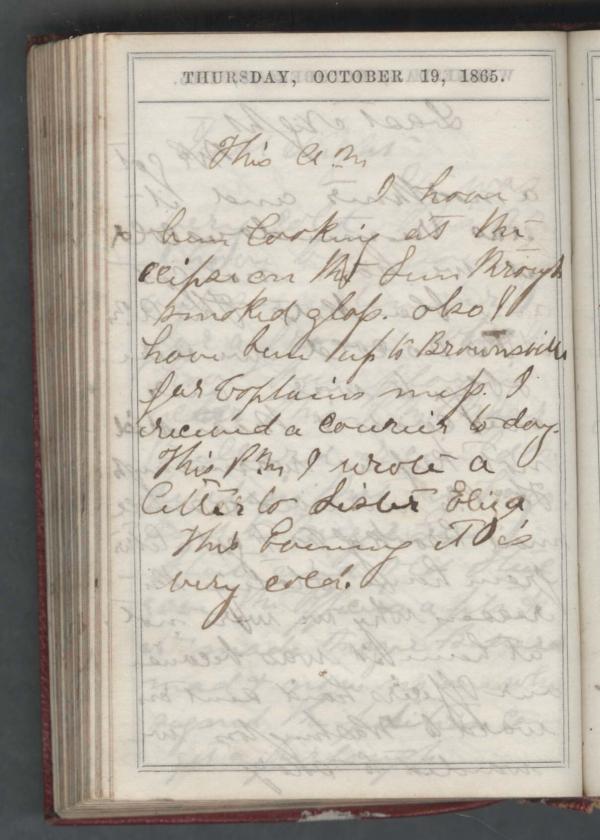 THURSDAY, OCTOBER 19, 1865.
This A.M
I have
been looking at the
eclips on the Sun through
smoked glass. also I
have been up to Brownsville
for Captains mess. I
received a courier to day.
This P.M I wrote a
letter to Sister Eliza
This Evening it is
very cold.